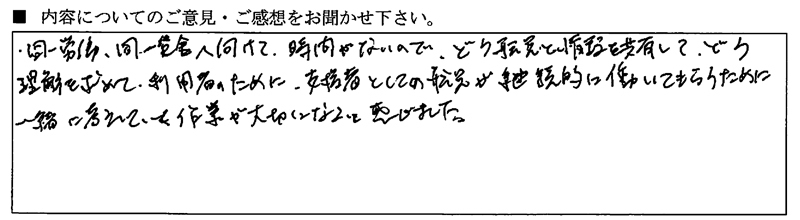 ■ 内容についてのご意見・ご感想をお聞かせ下さい。
・同一労働、同一賃金へ向けて、時間がないので、どう職員と情報を共有して、どう
理解を求めて、利用者のために、支援者としての職員が継続的に働いてもらうために
一緒に考えていく作業が大切になると感じました。